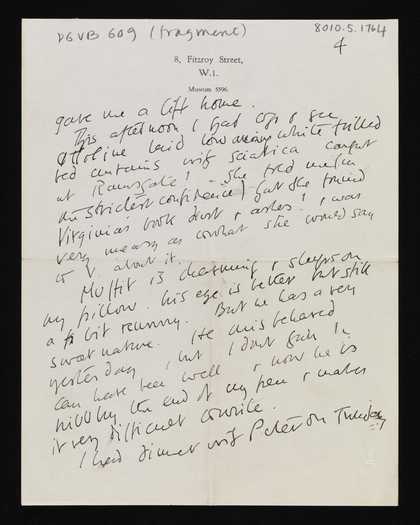 PGVB 609 (fragment)
8010.5.1764
4
8, Fitzroy Street,
W.1.
Museum 5596
gave me a lift home.
This afternoon I had to go & see
Ottoline laid low among white frilled
bed curtains with sciatica caught
at Ramsgate! - She told me (in
the strictest confidence) that she found
Virginias book dust & ashes! & was
very uneasy as to what she could say
to V. about it.
Moffit is charming & sleeps on
my pillow. his eye is better but still
a bit runny. But he has a very
sweet nature. He misbehaved
yesterday, but I dont think he
can have been well & now he is
nibbling the end of my pen & makes
it very difficult to write.
I had dinner with Peter on Tuesday